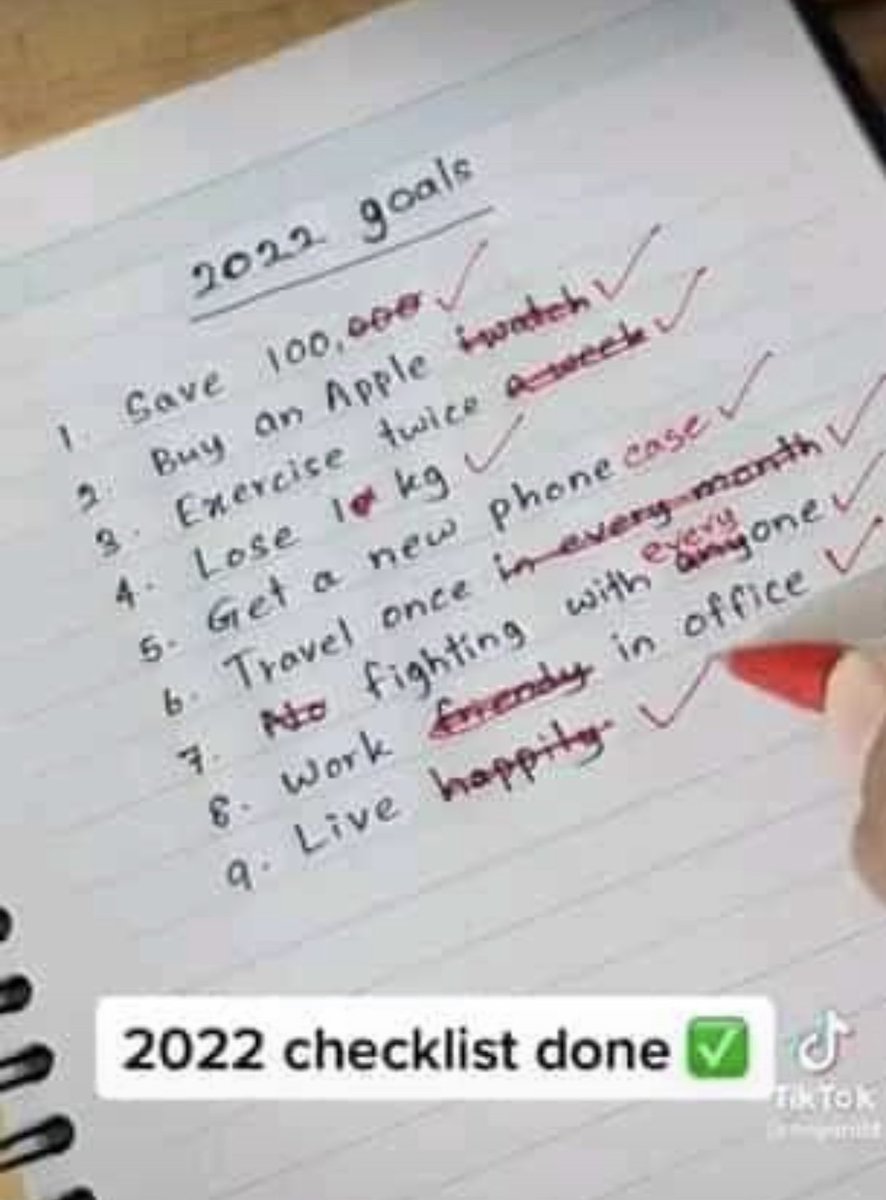 2022 goals
1. Save 100,000
2. Buy an Apple iwatch
3. Exercise twice a week
4. Lose 10 kg
5. Get a new phone case
6. Travel once in every month
every
7. No fighting with anyone
8. Work friendy in office
9. Live happily
2022 checklist done ✅
TikTok